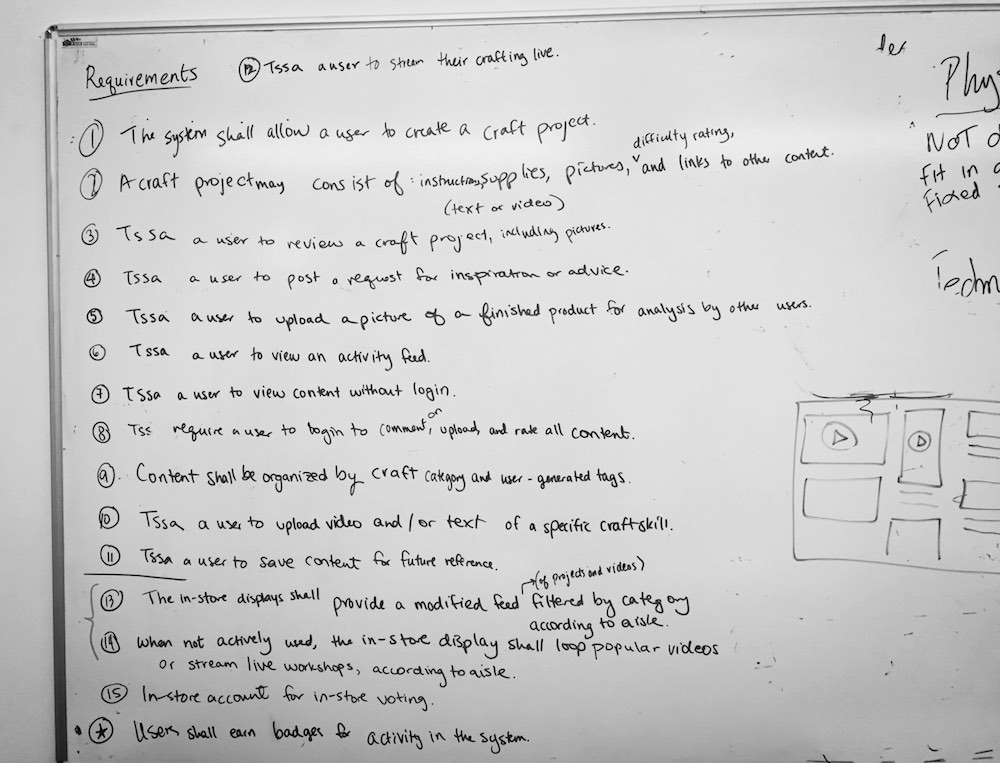 Requirements
⑫ Tssa a user to stream their crafting live.
① The system shall allow a user to create a craft project.
difficulty rating,
② A craft project may consist of: instructions, supplies, pictures, ˅ and links to other content.
(text or video)
③ Tssa a user to review a craft project, including pictures.
④ Tssa a user to post a request for inspiration or advice.
⑤ Tssa a user to upload a picture of a finished product for analysis by other users.
⑥ Tssa a user to view an activity feed.
⑦ Tssa a user to view content without login.
or
⑧ Tss require a user to login to comment, upload, and rate all content.
⑨. Content shall be organized by craft category and user-generated tags.
⑩ Tssa a user to upload video and/or text of a specific craft skill.
⑪ Tssa a user to save content for future reference.
(of projects and videos)
⑬ The in-store displays shall provide a modified feed filtered by category
according to aisle.
⑭ When not actively used, the in-store display shall loop popular videos
or stream live workshops, according to aisle.
⑮ In-store account for in-store voting.
• ★ Users shall earn badges for activity in the system.
Phy
NOT
fit in
fixed
Techn